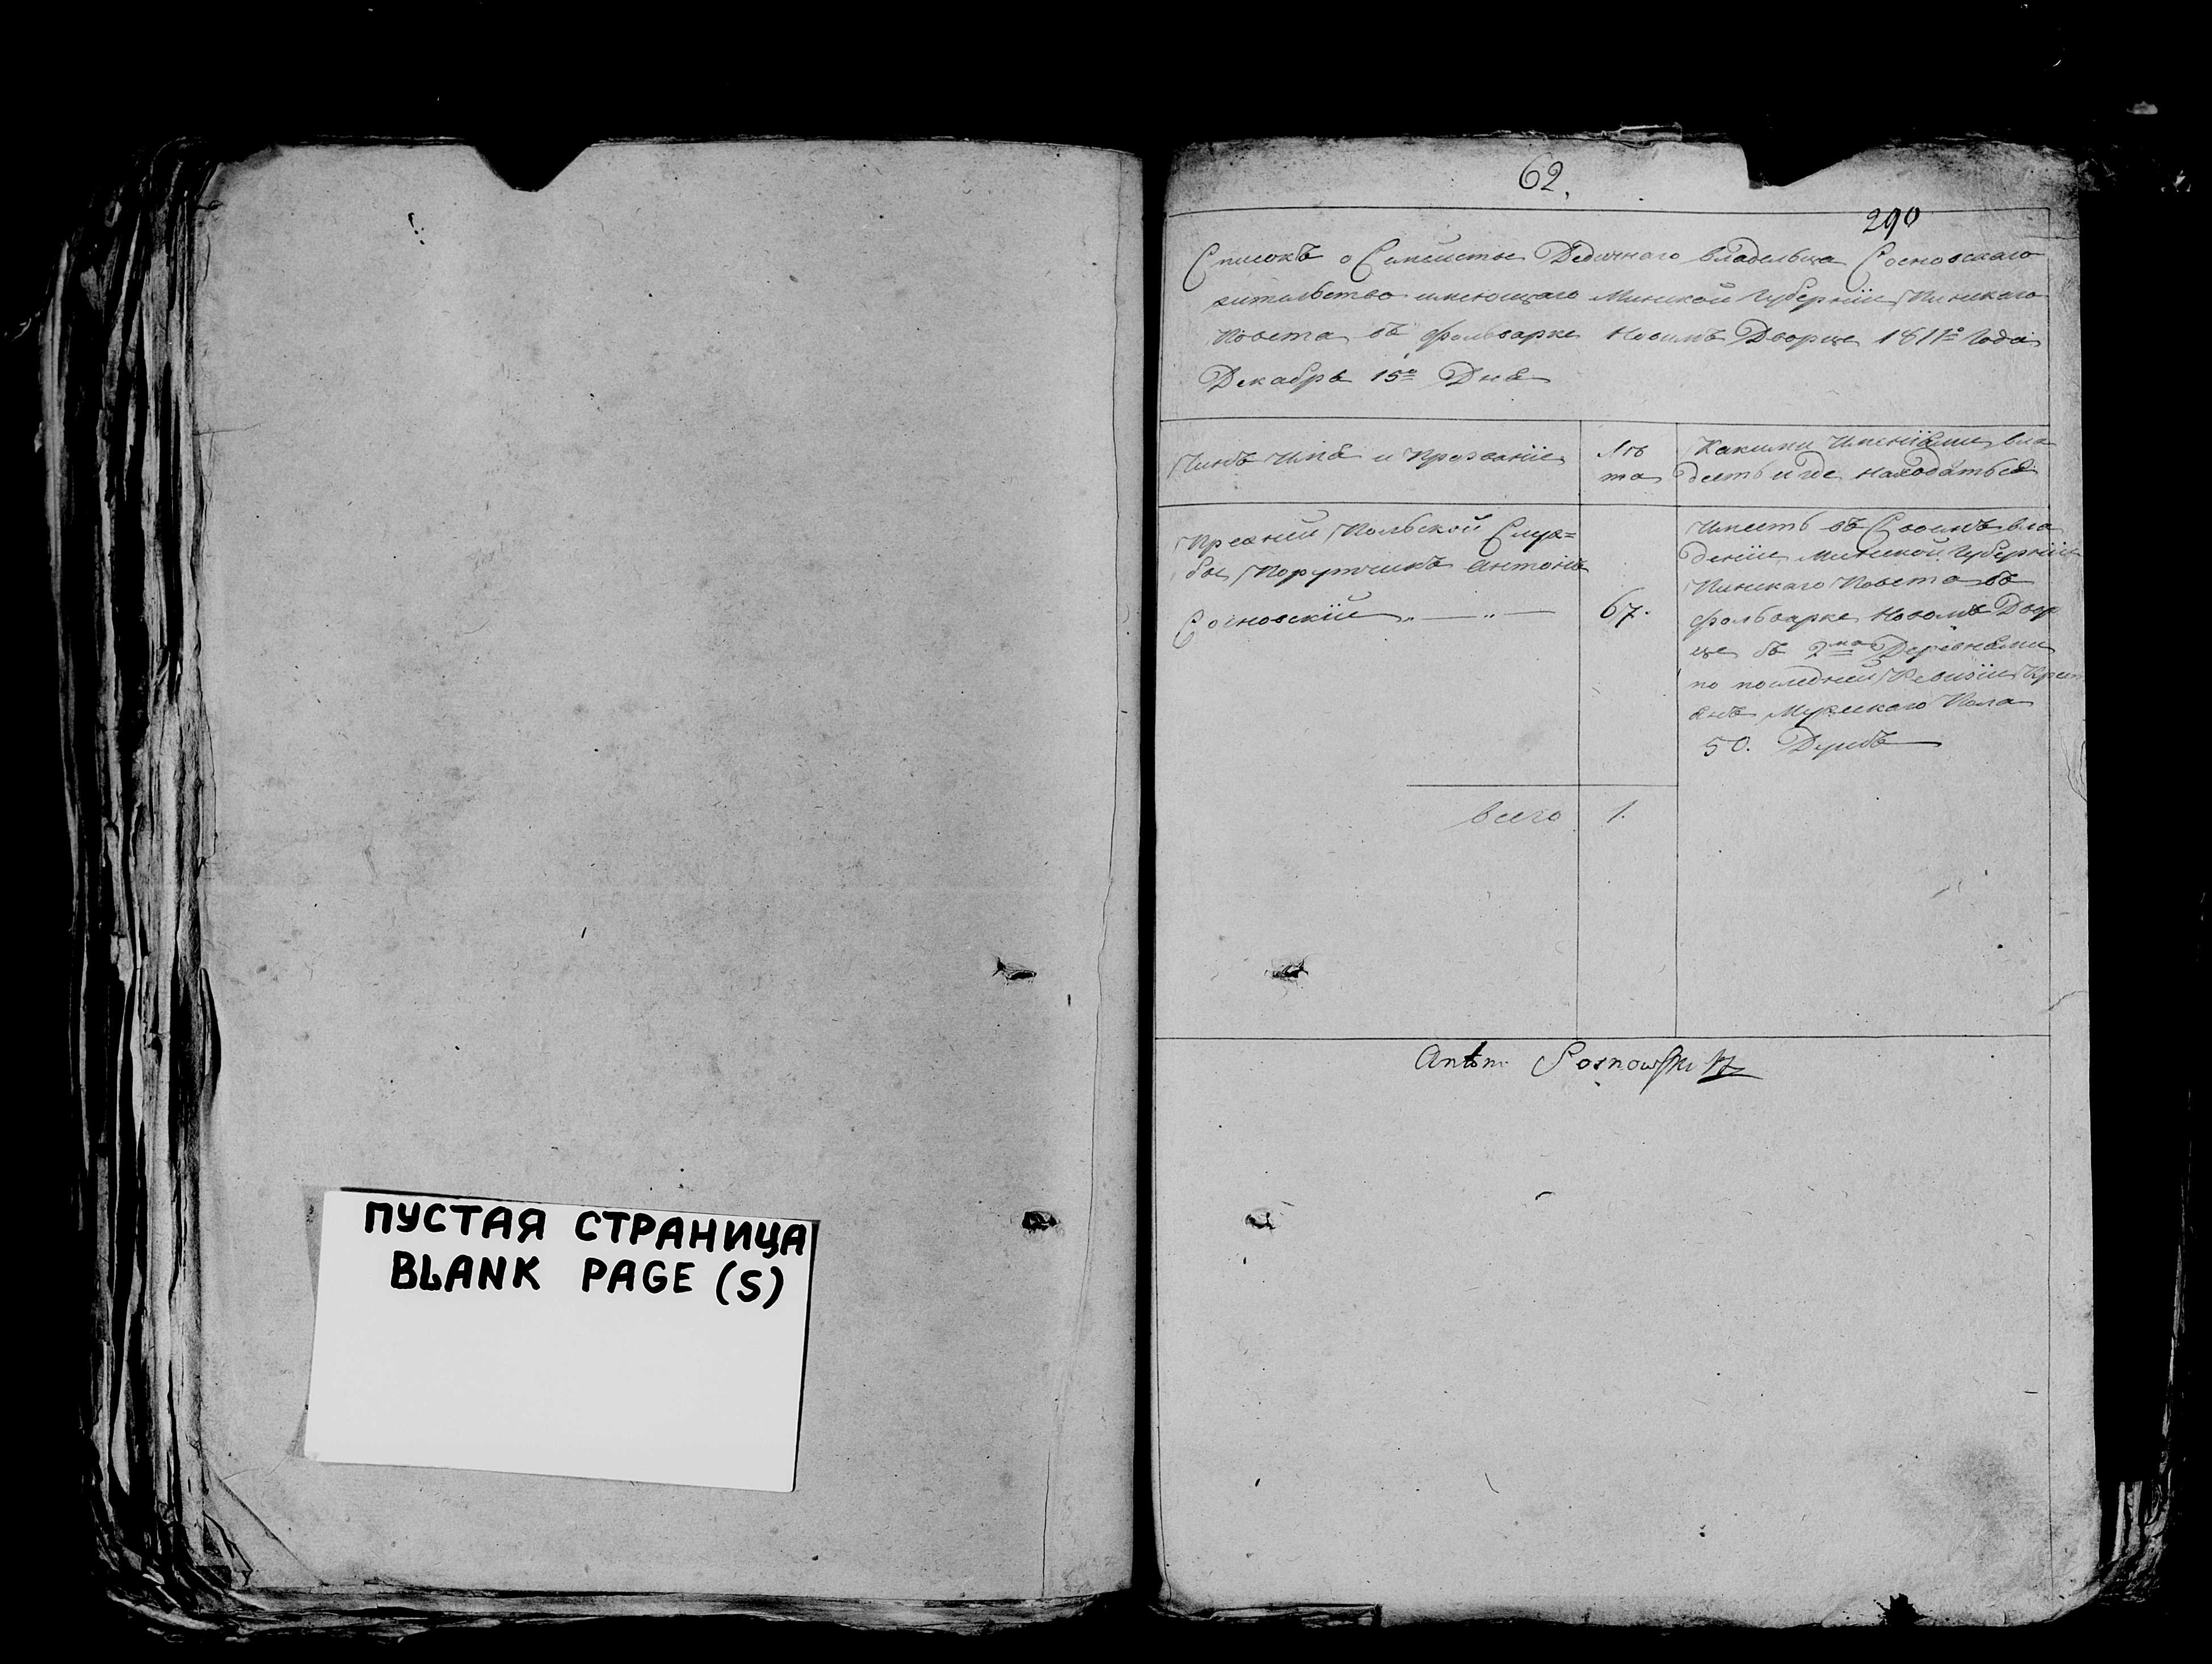 ПУСТАЯ СТРАНИЦА
BLANK PAGE (S)
62.
290
Списокъ о Семействе Дедичнаго владельца Сосновскаго
жительство имеющаго Минской Губернïи Пинскаго
Повета въ фольварке Новимъ Дворце 1811º Года
Декабря 15º Дня
Чинъ Имя и Прозванïе
Лѣ
та
Какими Именïями вла
деетъ и где находяться
Прежней Польской Служ=
бы Порутчикъ Антонïй
Сосновскïй
67.
Имеетъ въ Своимъ вла
денïи Минской Губернïи
Пинскаго Повета въ
фольварке Новомъ Двор
це съ 2мя Деревнями
по последней Ревизïи Крес
янъ Мужскаго Пола
50. Душъ
Всего 1.
Antoni Sosnowski